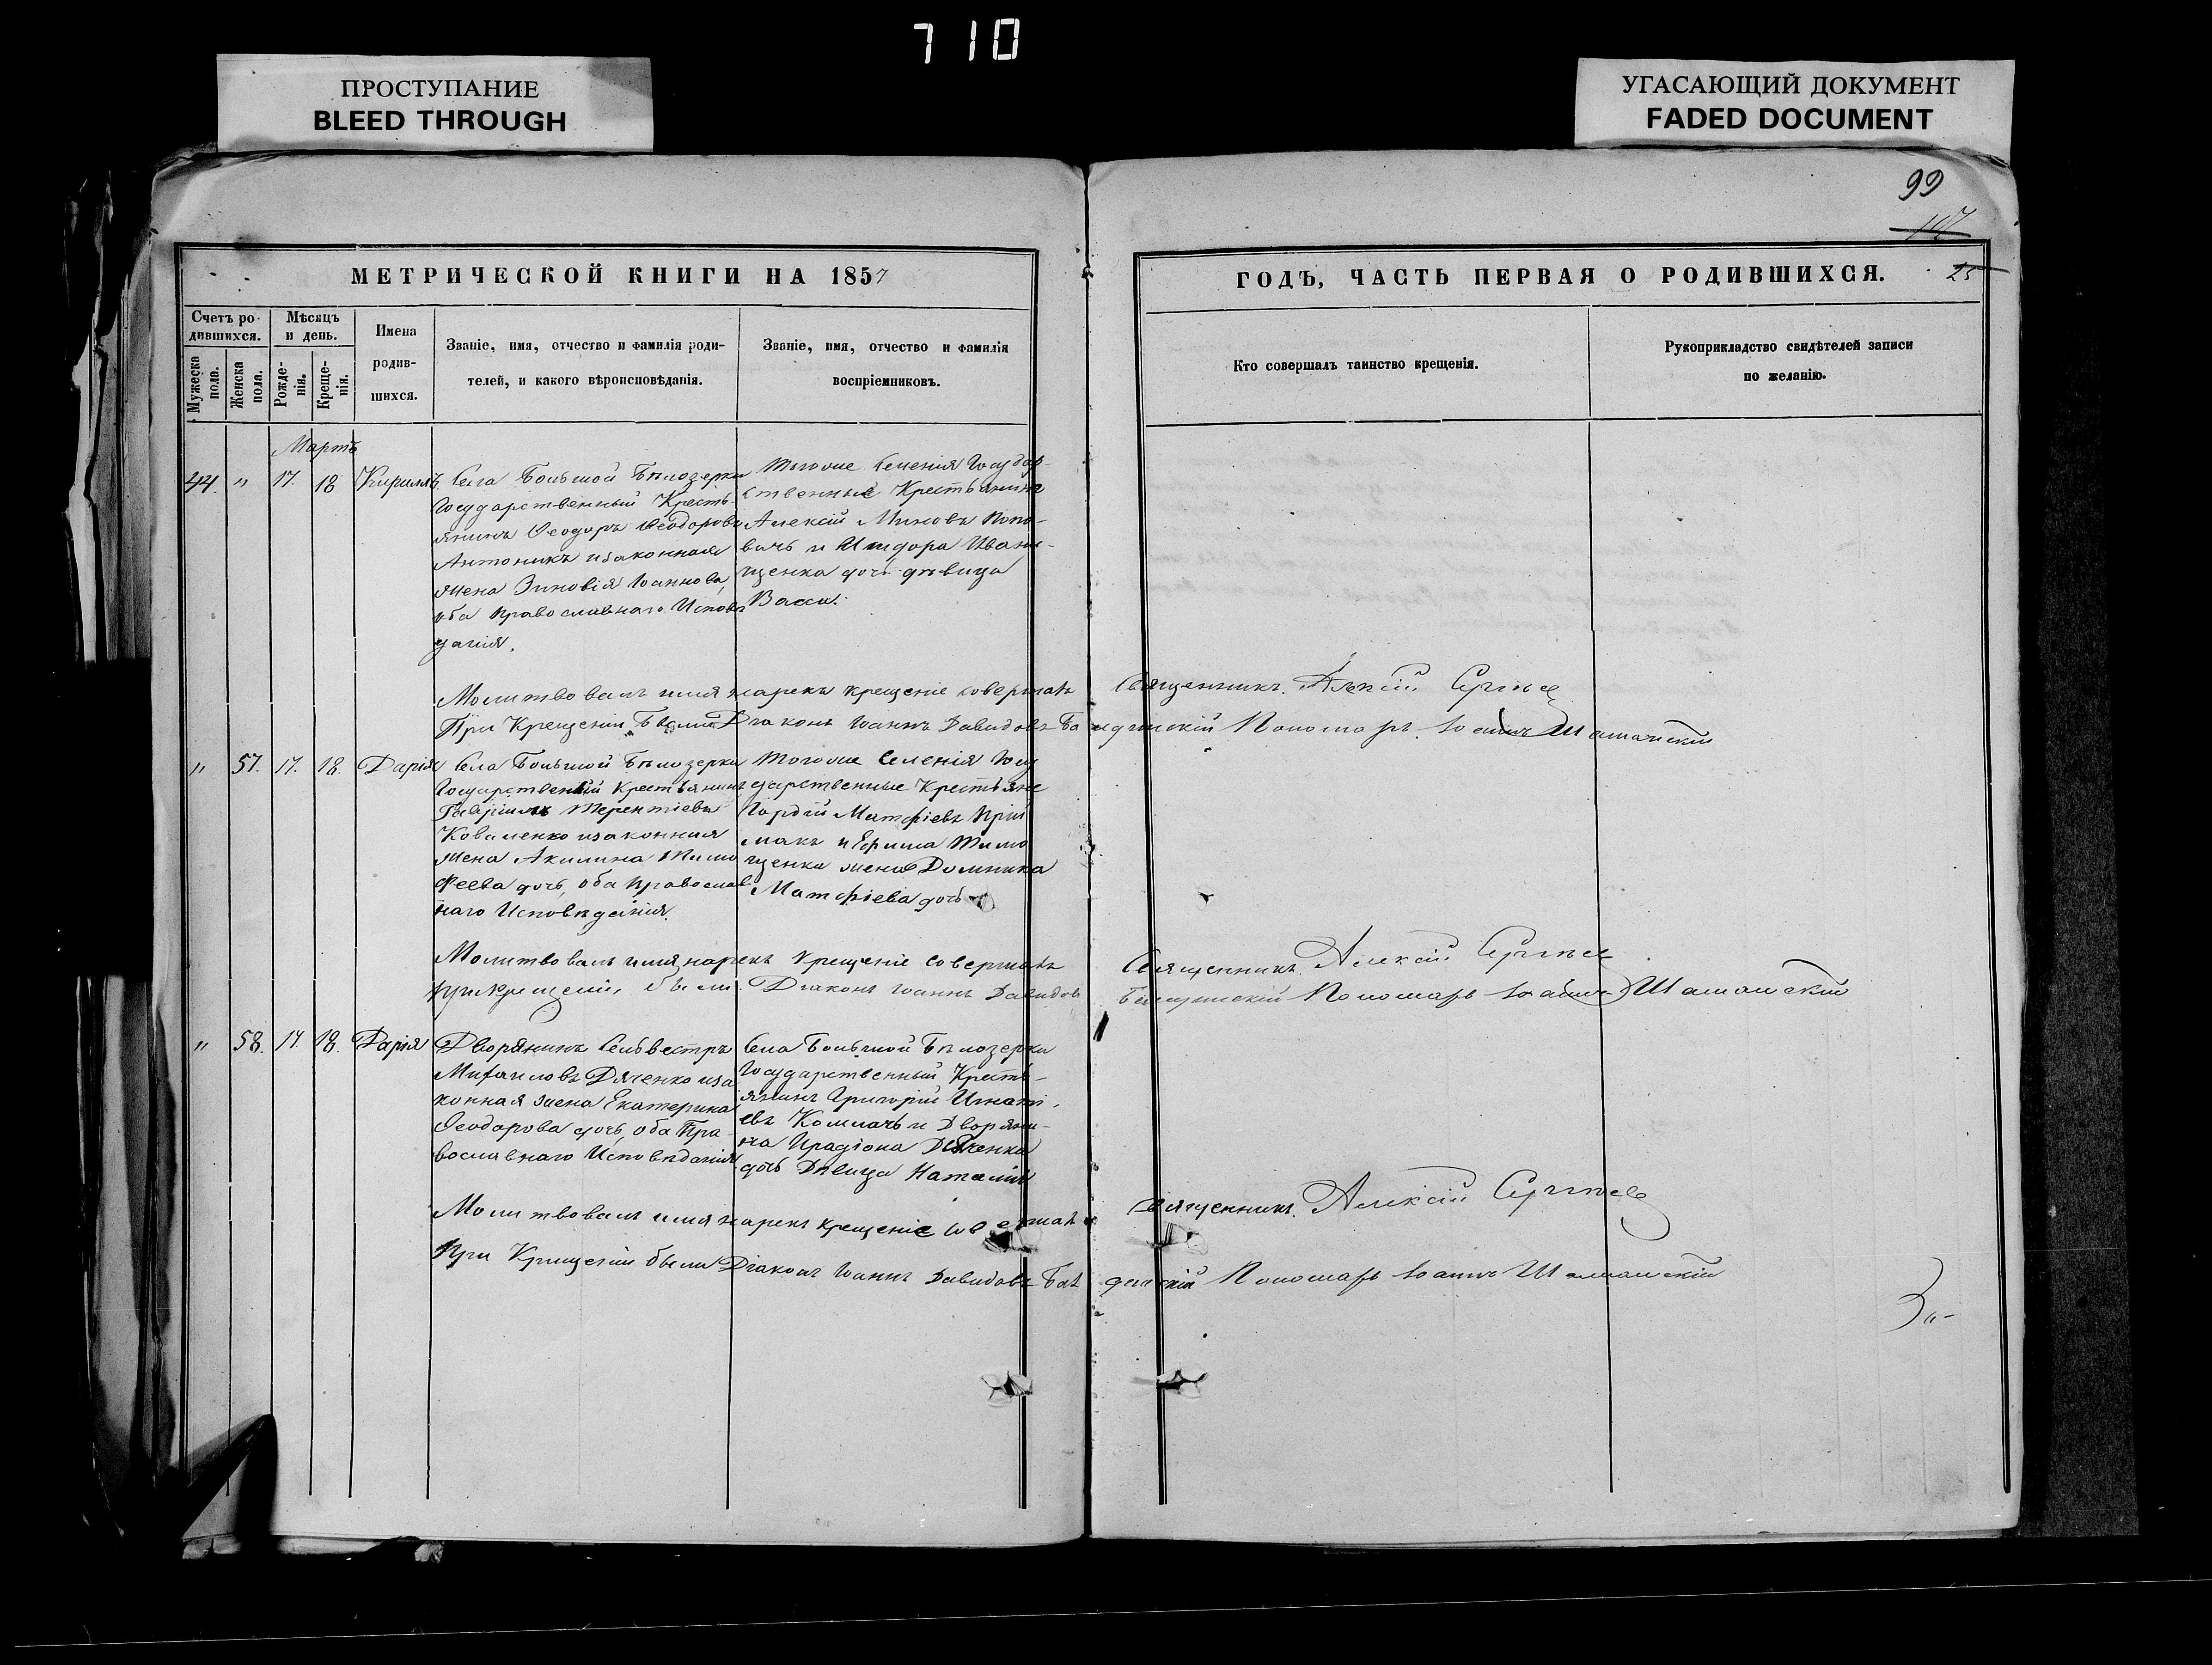 710
ПРОСТУПАНИЕ
BLEED THROUGH
УГАСАЮЩИЙ ДОКУМЕНТ
FADED DOCUMENT
99
117
МЕТРИЧЕСКОЙ КНИГИ НА 1857
ГОДЪ, ЧАСТЬ ПЕРВАЯ О РОДИВШИХСЯ.
25
Счетъ ро-
дившихся.
Мужеска пола.
Женска пола.
Мѣсяцъ
и день.
Рожде-
нія.
Креще-
нія.
Имена
родив-
шихся.
Званіе, имя, отчество и фамилія роди-
телей, и какого вѣроисповѣданія.
Званіе, имя, отчество и фамилія
воспріемниковъ.
Кто совершалъ таинство крещенія.
Рукоприкладство свидѣтелей записи
по желанію.
Мартъ
44. " 17. 18 Кириллъ
Села Большой Бѣлозерки
Государственный Кресть-
янинъ Ѳеодоръ Ѳеодоровъ
Антоникъ изаконная
жена Зиновія Іоаннова,
оба Православнаго Исповѣ
данія.
тогоже Селенія Государ-
ственные Крестьянинъ
Алексій Миновъ Попо-
вичъ и Исидора Иван-
щенка дочь дѣвица
Васса.
Молитвовалъ имянарекъ крещеніе совершалъ Священникъ Алексій Сергѣев
При Крещеніи Были Діаконъ Іоаннъ Давидовъ Пономарь Іоаннъ Шаманскій
" 57. 17. 18. Дарія
Села Большой Бѣлозерки
Государственный Крестьянинъ
Гавріилъ Терентіевъ
Коваленко изаконная
жена Акилина Тимо
феева дочь, оба Православ
наго Исповѣданія.
тогоже Селенія Госу
дарственные Крестьяне
Гордій Матфіевъ При
макъ и Ефима Тимо
щенка жена Домника
Матфіева дочь
Молитвовалъ имянарекъ Крещеніе Совершалъ Священникъ Алексій Сергѣев
при Крещеніи были Діаконъ Іоаннъ Давидовъ Пономарь Іоаннъ Шаманскій
" 58. 17. 18. Дарія
Дворянинъ Сельвестръ
Михаиловъ Дяченко иза
конная жена Екатерина
Ѳеодорова дочь, оба Пра
вославнаго Исповѣданія
Села Большой Бѣлозерки
Государственный Кресть-
янинъ Григорій Игнаті-
евъ Компачъ и Дворяни-
на Ирадіона Дяченка
дочь Дѣвица Наталія
Молитвовалъ имянарекъ крещеніе совершалъ Священникъ Алексій Сергѣев
При Крещеніи были Діаконъ Іоаннъ Давидовъ Пономарь Іоаннъ Шаманскій